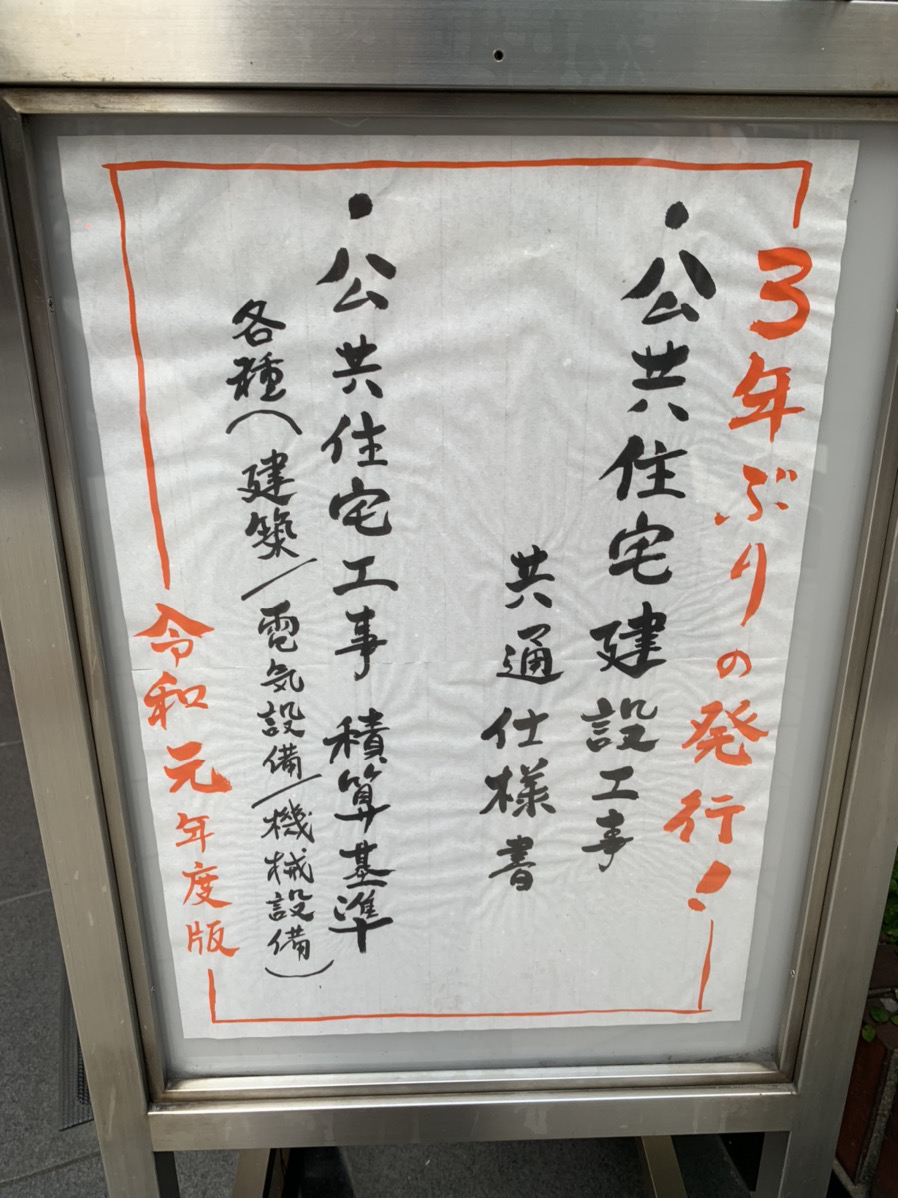 3年ぶりの発行!
・公共住宅建設工事
共通仕様書
・公共住宅工事 積算基準
各種(建築/電気設備/機械設備)
令和元年度版